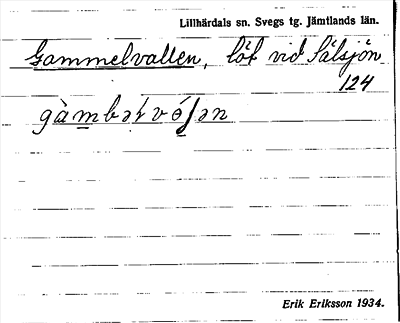 Lillhärdals sn. Svegs tg. Jämtlands län.
Gammelvallen, löt vid Sälsjön
124
Erik Eriksson 1934.